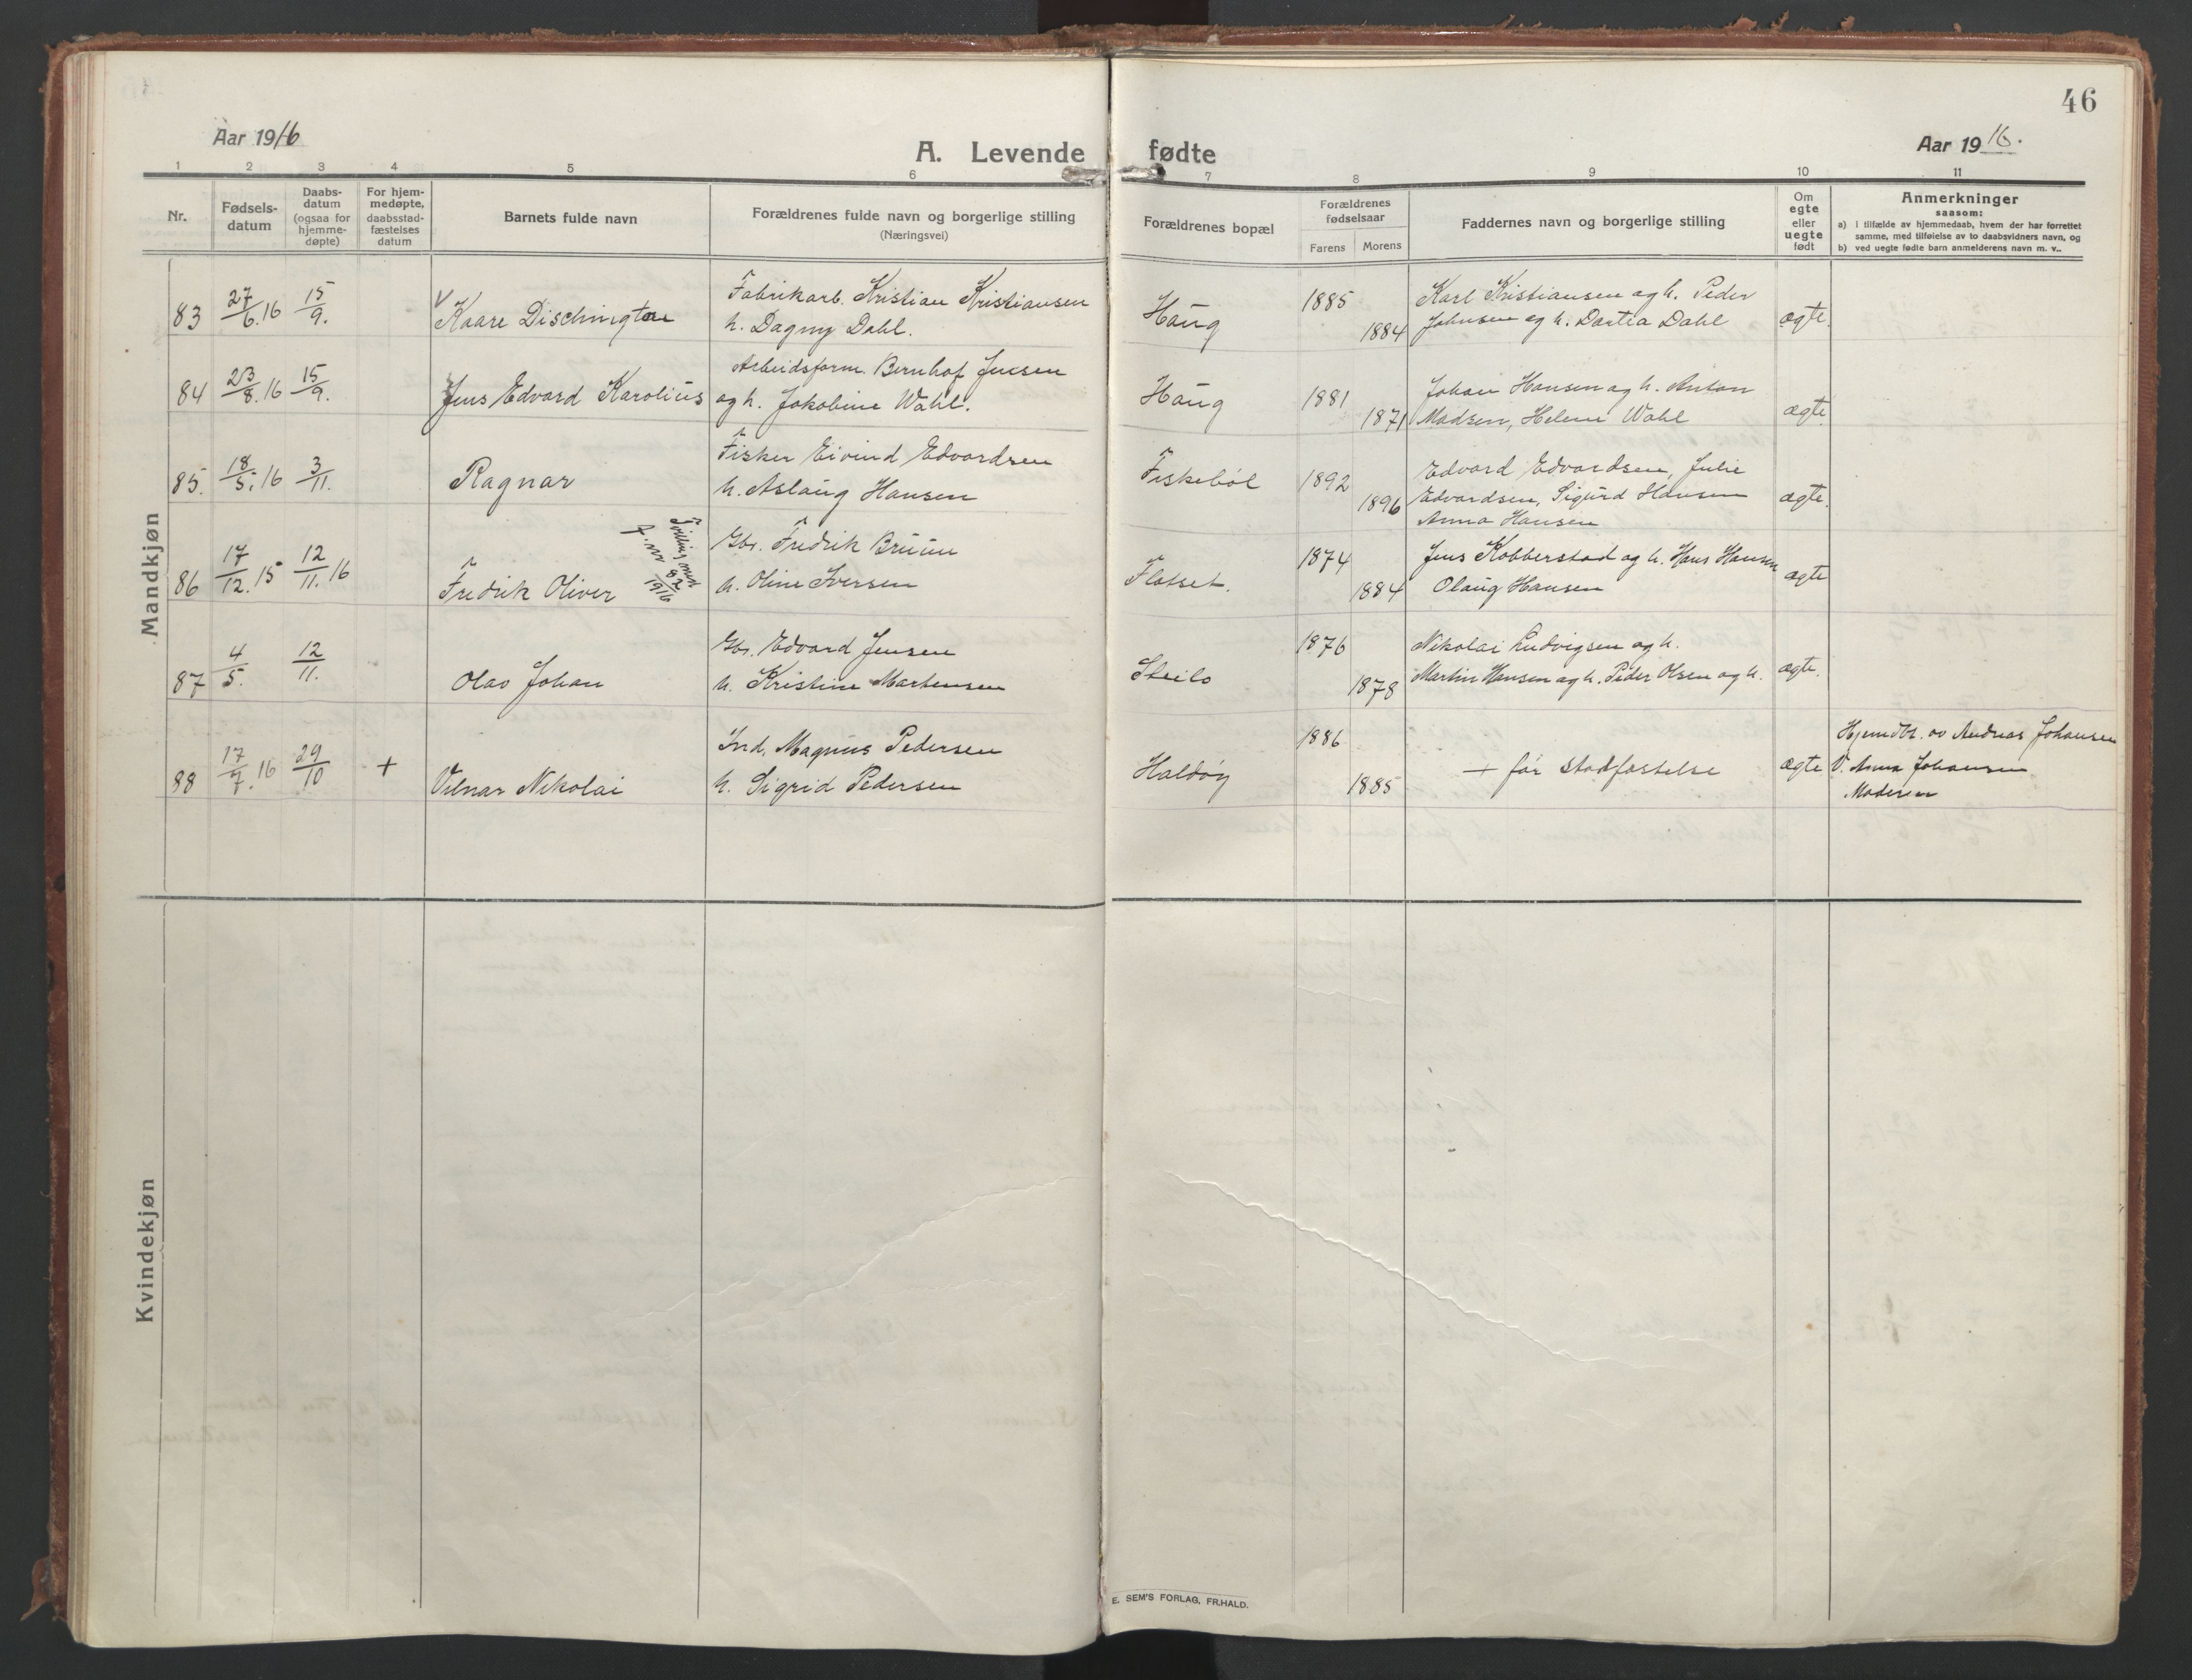 46
Aar 1916
A. Levende fødte
Aar 1916.
1 2 3 4 5 6 7 8 9 10 11
Nr.
Fødsels-
datum
Daabs-
datum
(ogsaa for
hjemme-
døpte)
For hjem-
medøpte,
daabsstad-
fæstelses
datum
Barnets fulde navn
Forældrenes fulde navn og borgerlige stilling
(Næringsvei)
Forældrenes bopæl
Forældrenes
fødselsaar
Farens Morens
Faddernes navn og borgerlige stilling
Om
egte
eller
uegte
født
Anmerkninger
saasom:
a) i tilfælde av hjemmedaab, hvem der har forrettet
samme, med tilføielse av to daabsvidners navn, og
b) ved uegte fødte barn anmelderens navn m. v..
Mandkjøn
83 27/6.16 15/9.
Kaare Dischington
Fabrikarb. Kristian Kristiansen
h. Dagny Dahl.
Haug
1885
1884
Karl Kristiansen og h. Peder
Johnsen og h. Dortea Dahl
ægte.
84 23/8.16 15/9.
Jens Edvard Karolius
Arbeidsform. Bernhof Jensen
og h. Jakobine Wahl.
Haug
1881
1871
Johan Hansen og h. Anton
Madsen, Helene Wahl
ægte.
85. 18/5.16 3/11.
Ragnar
Fisker Eivind Edvardsen
h. Aslaug Hansen
Fiskeböl
1892
1896
Edvard Edvardsen, Julie
Edvardsen, Sigurd Hansen
Anna Hansen
ægte.
86 17/12.15 12/11.16
Fredrik Oliver
Tvilling med
f. nr 82
1916
Gbr. Fredrik Bruun
h. Oline Iversen
Flatset.
1874
1884
Jens Kobberstad og h. Hans Hansen
Olaug Hansen
ægte
87 4/5. 12/11.
Olav Johan
Gbr. Edvard Jensen
h. Kristine Martensen
Steilo
1876
1878
Nikolai Ludvigsen og h.
Martin Hansen og h. Peder Olsen og h.
ægte.
88 17/7.16 29/10 +
Vilnar Nikolai
Ind. Magnus Pedersen
h. Sigrid Pedersen
Haldöy
1886
1885
+ før stadfæstelse
ægte
Hjemdbt. av Andreas Johansen
V. Anna Johansen
Moderen
Kvindekjøn
E. SEM'S FORLAG, FR.HALD.